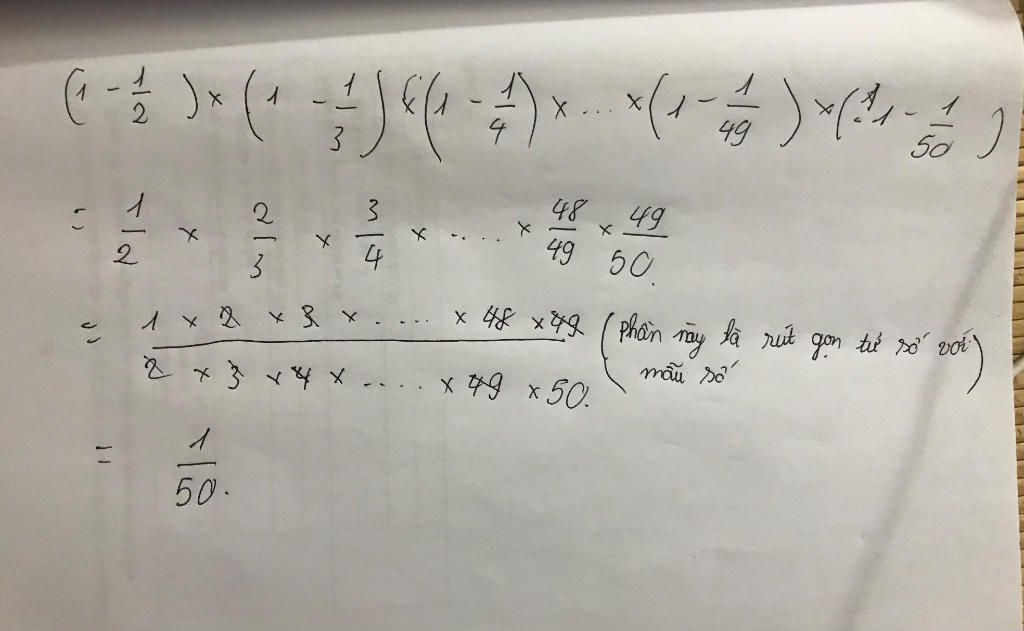 (1 - 1/2) × (1 - 1/3) × (1 - 1/4) × ... × (1 - 1/49) × (1 - 1/50)
= 1/2 × 2/3 × 3/4 × .... × 48/49 × 49/50.
= (1 × 2 × 3 × .... × 48 × 49)/(2 × 3 × 4 × .... × 49 × 50.) (phần này là rút gọn tử số với
mẫu số)
= 1/50.